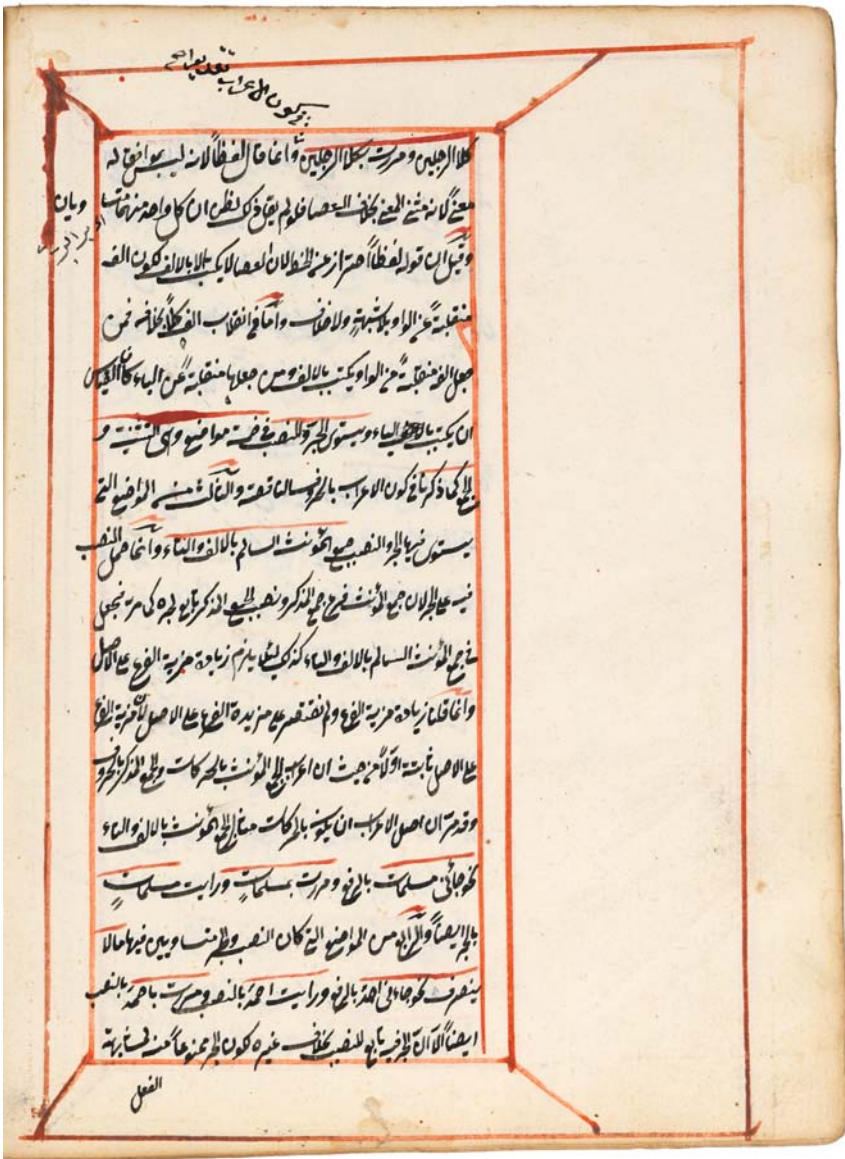 في كون الاعراب
كلا الرجلين ومررت بكلا الرجلين وانما قال لفظاً لانه ليس بموافق له
معنى لانه مثنى المعنى بخلاف العصا فلو لم يقل ذلك لظن ان كل واحد منهما
وقيل ان قوله لفظاً احتراز عن الخط لان العصا لا يكتب الا بالالف لكون الفه
منقلبة عن الواو بلا شبهة ولا خلاف واما في انقلاب الف كلا بخلافه فمن
جعل الفه منقلبة من الواو يكتب بالالف ومن جعلها منقلبة عن الياء كان القياس
ان يكتب بالياء ويستوى الجر والنصب في خمسة مواضع وهى التثنية و
الجمع كما ذكرنا في كون الاعراب بالحروف الناقصة والثالث من المواضع التى
يستوى فيها الجر والنصب جمع المؤنث السالم بالالف والتاء وانما حمل النصب
فيه على الجر لان جمع المؤنث فرع جمع المذكر ونصب الجمع المذكر تابع لجره كما مر فجعل
في جمع المؤنث السالم بالالف والتاء كذلك لئلا يلزم زيادة مزية الفرع على الاصل
وانما قلنا زيادة مزية الفرع ولم نقتصر على مزية الفرع على الاصل لان مزية الفرع
على الاصل ثابتة اولاً من حيث ان اعراب الجمع المؤنث بالحركات والجمع المذكر بالحروف
وقد مر ان اصل الاعراب ان يكون بالحركات مثال الجمع المؤنث بالالف والتاء
نحو جائنى مسلمات بالرفع ومررت بمسلماتٍ ورايت مسلماتٍ
بالجر ايضاً والرابع من المواضع التى كان النصب والجر متساويين فيها مالا
ينصرف نحو جاءنى احمد بالرفع ورايت احمد بالنصب ومررت باحمد بالنصب
ايضاً الا ان الجر فيه تابع للنصب بخلاف غيره لكون الجر ممنوعاً منه لمشابهة
الفعل